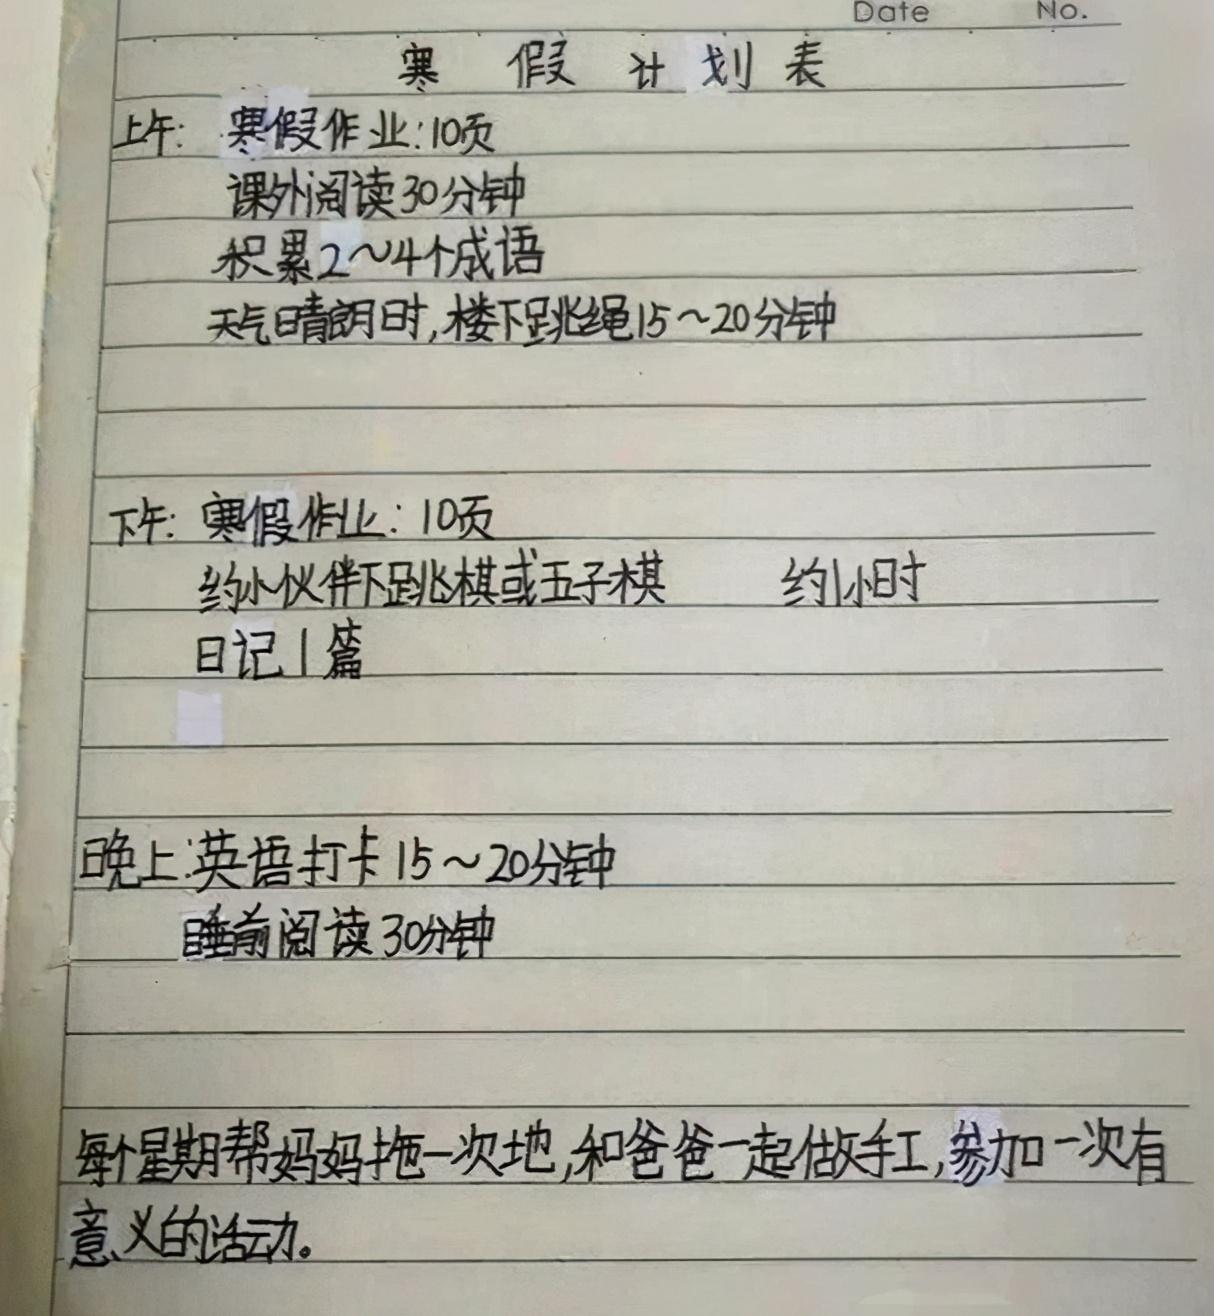 Date No.
寒假计划表
上午: 寒假作业:10页
课外阅读30分钟
积累2~4个成语
天气晴朗时,楼下跳绳15~20分钟
下午: 寒假作业: 10页
约小伙伴下跳棋或五子棋 约1小时
日记1篇
晚上:英语打卡15~20分钟
睡前阅读30分钟
每个星期帮妈妈拖一次地,和爸爸一起做手工,参加一次有
意义的活动。